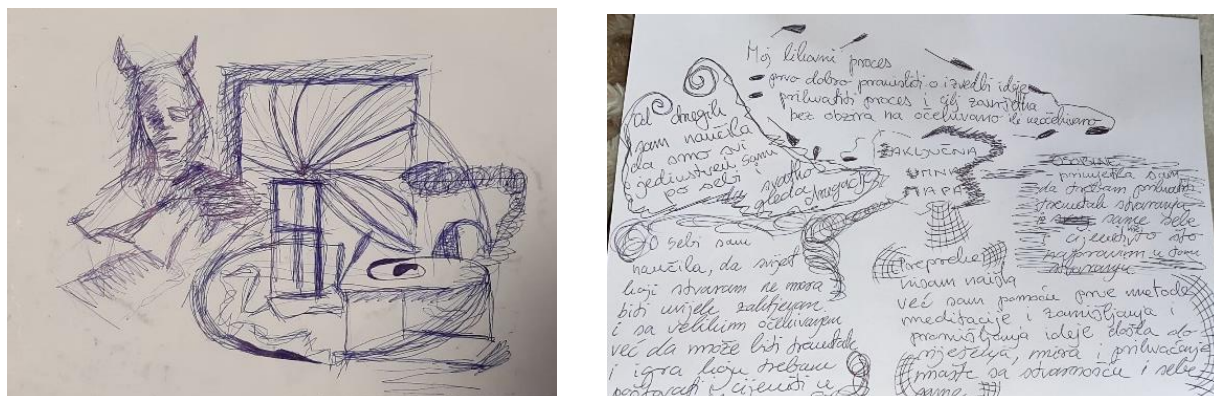 Moj likovni proces
prvo dobro promisliti o izvedbi ideje
prihvatiti proces i cilj završetka
bez obzira na očekivano ili neočekivano
Od drugih
sam naučila
da smo svi
jedinstveni samu
po sebi i
svatko
gleda drugačije
ZAKLJUČNA
UMNA
MAPA
OSOBINE
primijetila sam
da trebam prihvatiti
trenutak stvaranja
i same sebe
i cijeniti to što
napravim u tom
stvaranju
O sebi sam
naučila, da svijet
koji stvaram ne mora
biti uvijek zahtjevan
i sa velikim očekivanjem
već da može biti trenutak
i igra koju trebam
poštovati i cijeniti u
Prepreke
nisam naišla
već sam pomoću prve metode
meditacije i zamišljanja i
promišljanja ideje došla do
rješenja, mira i prihvaćanje
mašte sa stvarnošću i sebe
same